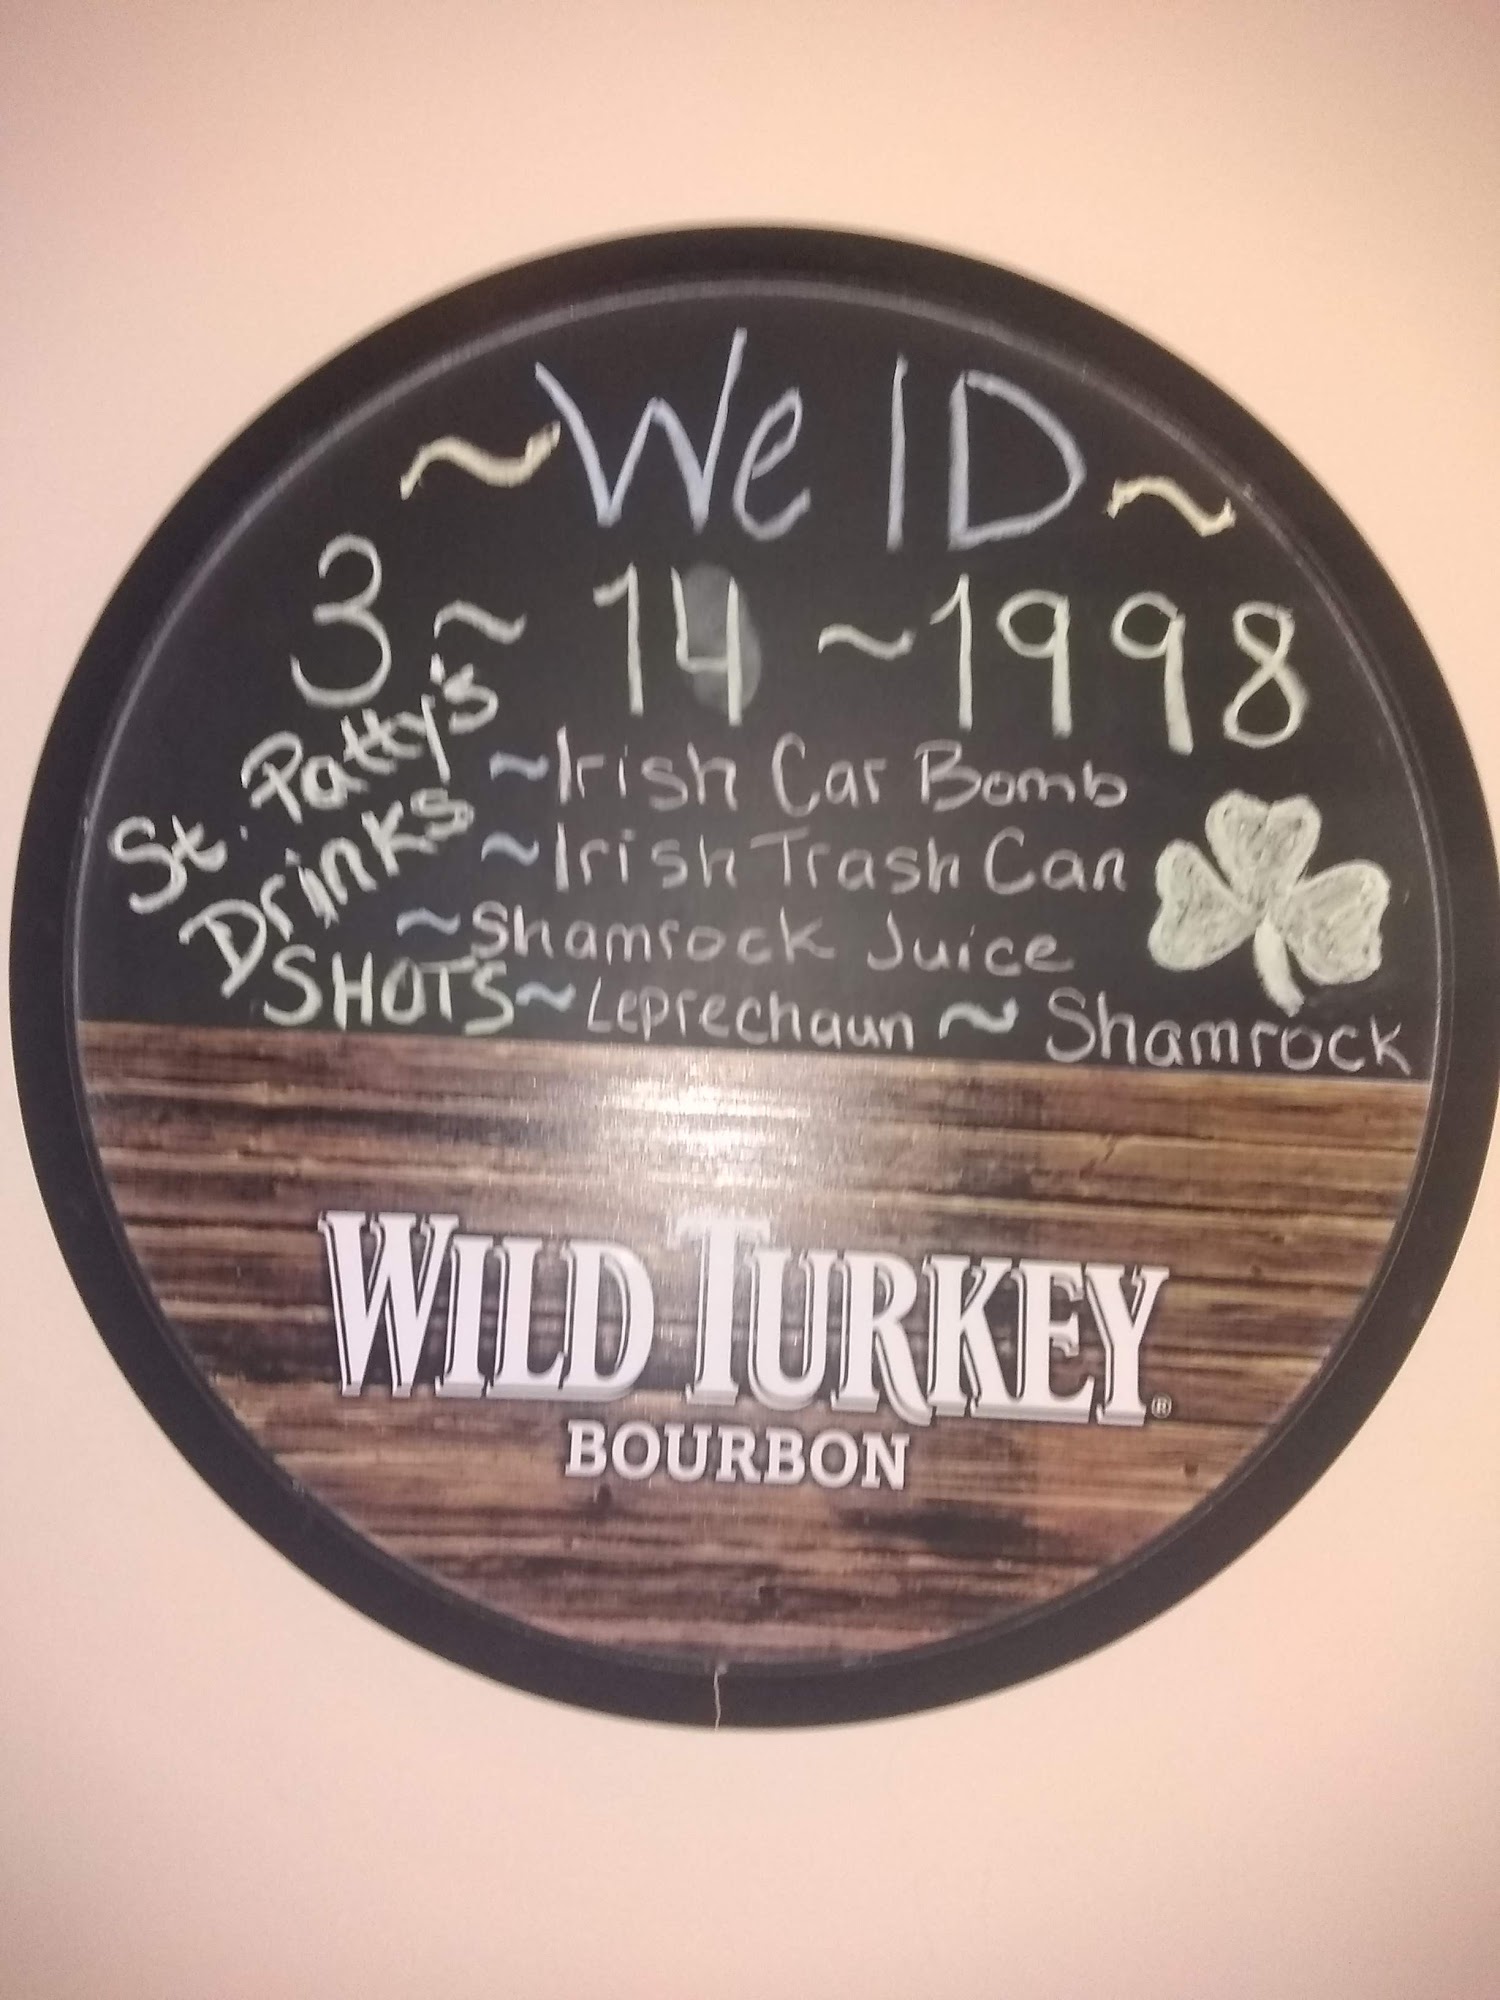 ~ We ID ~
3 ~ 14 ~ 1998
St. Patty's
Drinks
~ Irish Car Bomb
~ Irish Trash Can
~ Shamrock Juice
SHOTS ~ Leprechaun ~ Shamrock
WILD TURKEY®
BOURBON